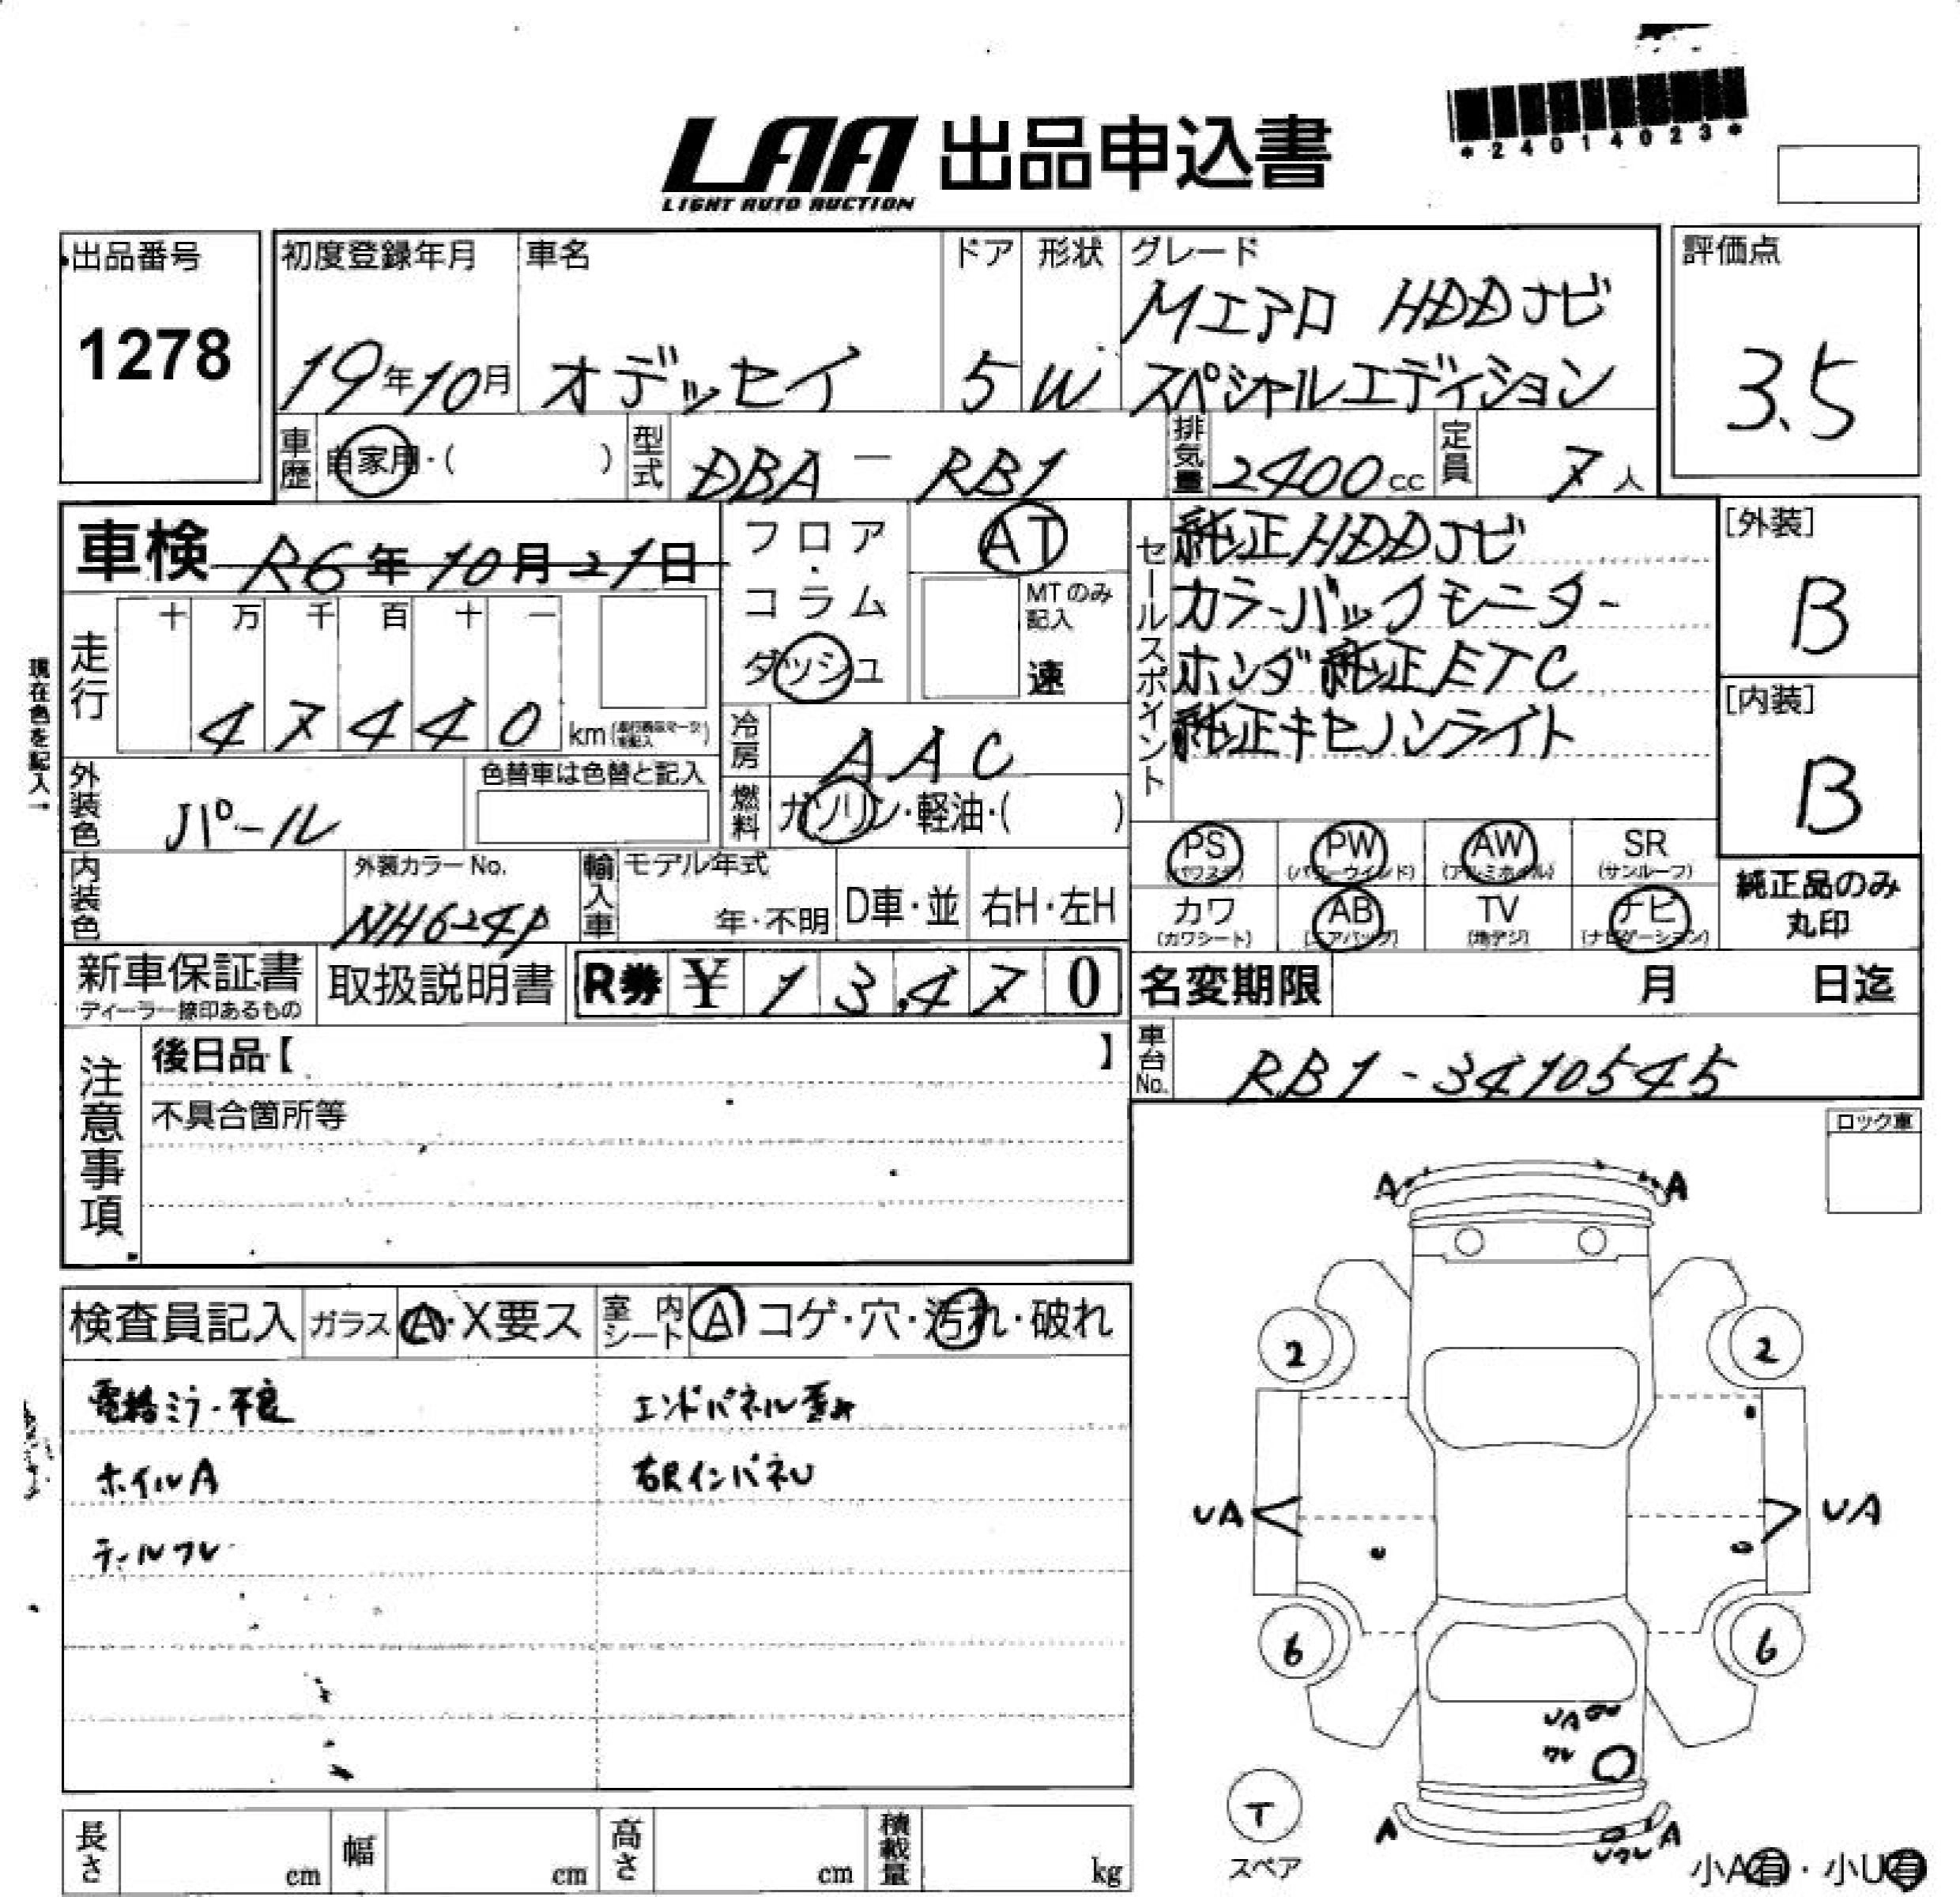 *24014023*
LAA 出品申込書
LIGHT AUTO AUCTION
出品番号
1278
初度登録年月
19年10月
車名
オデッセイ
ドア
5
形状
W
グレード
Mエアロ HDDナビ
スペシャルエディション
評価点
3.5
車歴
自家用・( )
型式
DBA - RB1
排気量
2400cc
定員
7人
車検 R6年10月21日
フロア・コラム
ダッシュ
AT
MTのみ記入
速
セールスポイント
純正HDDナビ
カラーバックモニター
ホンダ純正ETC
純正キセノンライト
[外装]
B
[内装]
B
現在色を記入→
走行
十 万 千 百 十 一
4 7 4 4 0 km
冷房
AAC
外装色
パール
色替車は色替と記入
燃料
ガソリン・軽油・( )
PS
(パワステ)
PW
(パワーウインド)
AW
(アルミホイル)
SR
(サンルーフ)
カワ
(カワシート)
AB
(エアバッグ)
TV
(地デジ)
ナビ
(ナビゲーション)
純正品のみ
丸印
内装色
外装カラーNo.
NH624P
輸入車
モデル年式
年・不明
D車・並
右H・左H
新車保証書
ディーラー捺印あるもの
取扱説明書
R券 ¥ 1 3,4 7 0
名変期限 月 日迄
車台No.
RB1-3410545
注意事項
後日品【 】
不具合箇所等
ロック車
検査員記入
ガラス
A・X要ス
室内シート
A コゲ・穴・汚れ・破れ
電格ミラー不良
エンドパネル歪み
ホイルA
右RインパネU
テールワレ
A A
2 2
UA UA
6 6
UA
ワレ
T
スペア
A A
Uワレ
小A有・小U有
長さ cm
幅 cm
高さ cm
積載量 kg